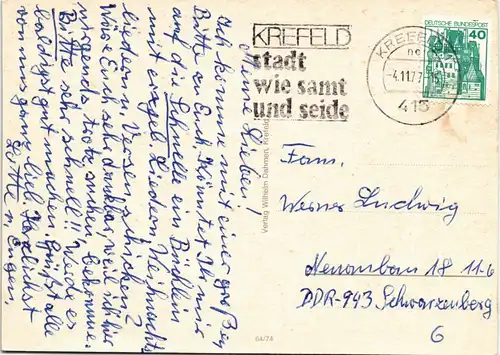 Meine Lieben!
Ich komme mit einer großen
Bitte an Euch. Könntet Ihr mir
auf die Schnelle ein Büchlein
mit erzgb. Liedern, Weihnachts
liedern, Versen schicken?
Wäre Euch sehr dankbar, weil ich hier
nirgends trotz suchen bekomme.
Bitte sehr schnell!! Werde es
baldigst gut machen. Grüßt alle
von uns ganz lieb. Herzlichst
Lotte u. Eugen.
KREFELD
stadt
wie samt
und seide
KREFELD
-4.11.77
415
DEUTSCHE BUNDESPOST
40
Verlag Wilhelm Dahmen, Krefeld
Fam.
Werner Ludwig
18 11-6
DDR-943 Schwarzenberg
6
64/74